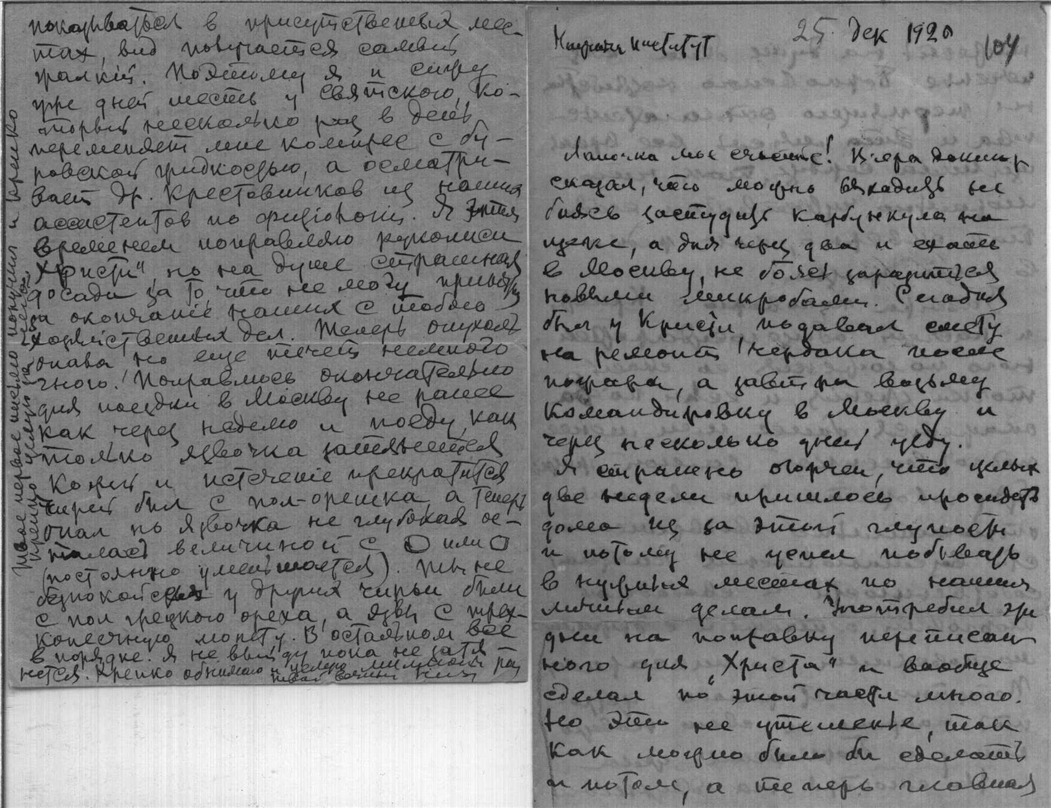 показываться в присутственных мес-
тах, вид получается самый
жалкий. Поэтому я и сижу
уже дней шесть у Святского, ко-
торый несколько раз в день
переменяет мне компрес с бу-
ровской жидкостью, а осматри-
вает др. Крестовников из наших
ассистентов по физіологіи. Я этим
временем поправляю рукописи
"Христа" но на душе страшная
досада за то, что не могу
за окончаніе наших с тобою
хозяйственных дел. Теперь опухоль
опала но еще течет немного
гного. Поправлюсь окончательно
для поездки в Москву не ранее
как через неделю и поеду как
только язвочка затянется
кожей и истеченіе прекратится
Чирей был с пол-орешка, а теперь
опал но язвочка не глубокая ос-
талась величиной с O или O
(постоянно уменьшается). Ты не
безпокойся у других чирьи были
с пол грецкого ореха, а язвы с трех-
копеечную монету. В остальном все
в порядке. Я не выйду пока не затя
нется. Крепко обнимаю и целую милусю раз
Твое первое письмо получил и крепко
крепко целую за него
25 Дек 1920
Научный институт
104
Лапочка мое счастье! Вчера доктор
сказал, что можно выходить не
боясь застудить карбункула на
щеке, а дня через два и ехать
в Москву, не боясь заразиться
новыми микробами. Сегодня
был у Кристи, подавал смету
на ремонт чердака после
пожара, а завтра возьму
командировку в Москву и
через несколько дней уеду.
Я страшно огорчен, что целых
две недели пришлось просидеть
дома из за этой глупости
и потому не успел побывать
в нужных местах по нашим
личным делам. Употребил эти
дни на поправку переписан
ного для "Христа" и вообще
сделал по этой части много.
Но это не утешенье, так
как можно было бы сделать
и потом, а теперь главная